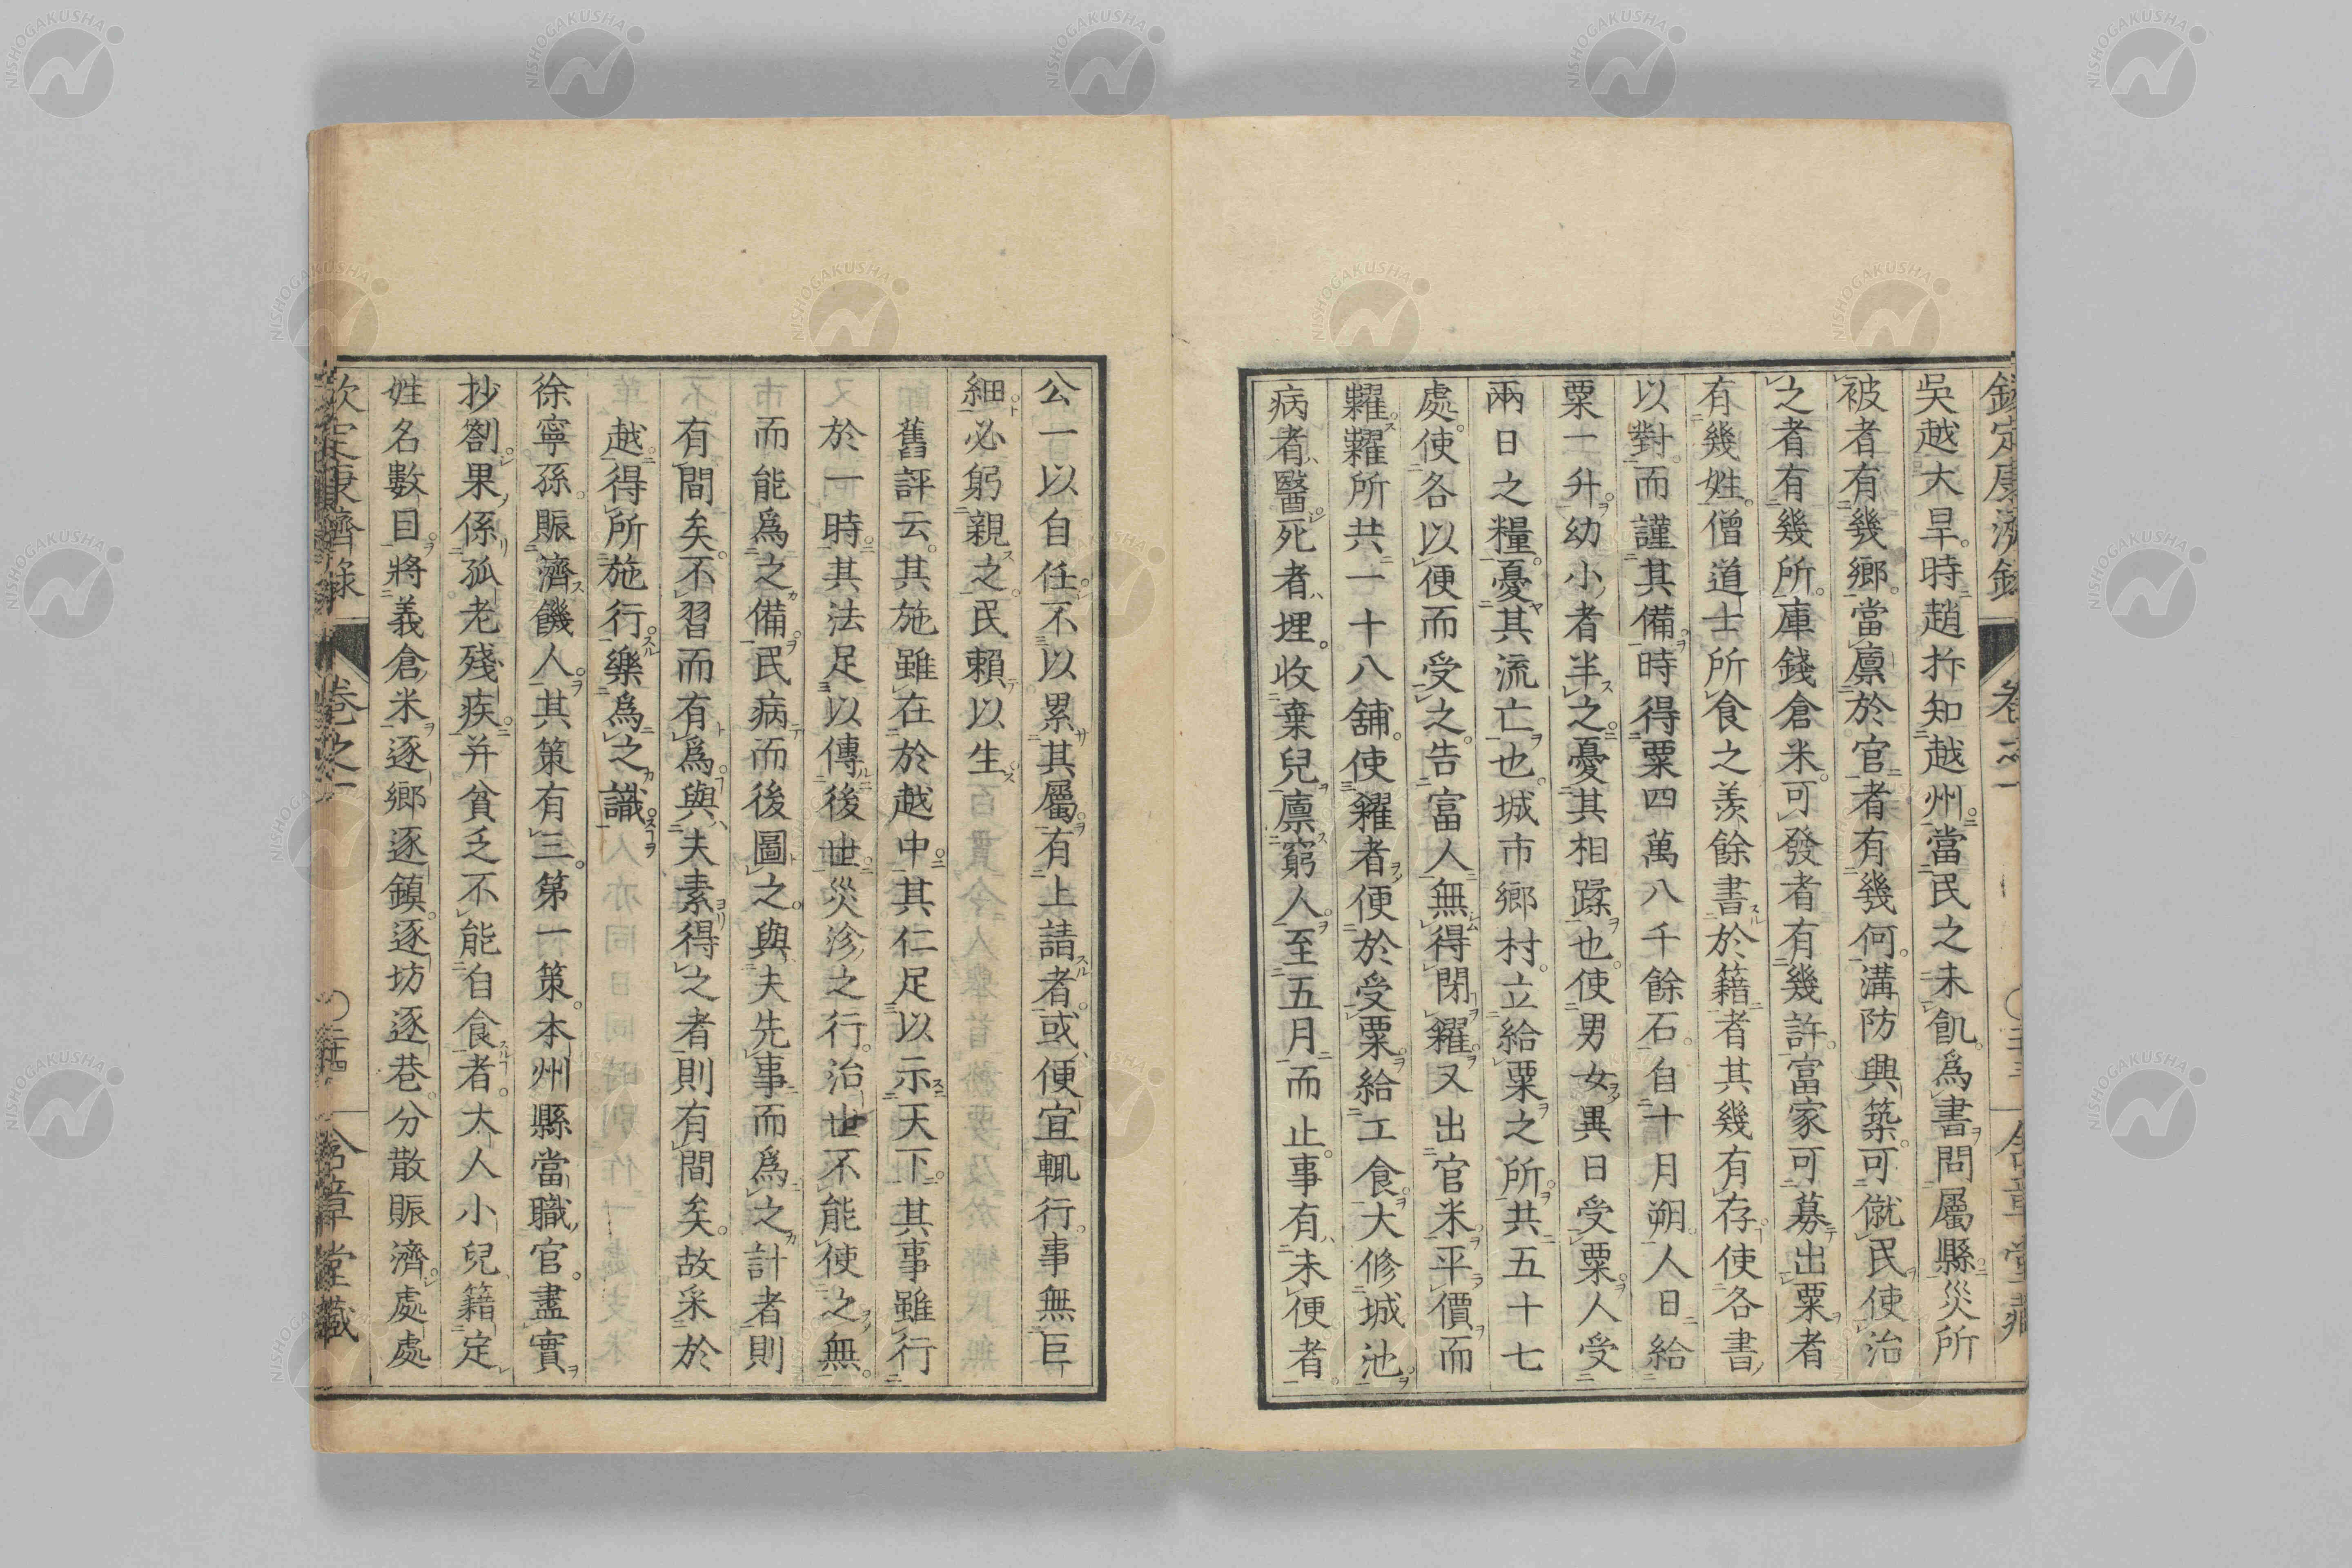 吳越大旱。時趙抃知越州。當民之未飢。爲書問屬縣災所
被者有幾鄉。當廪於官者有幾何。溝防興築。可僦民使治
之者有幾所。庫錢倉米。可發者有幾許。富家可募出粟者
有幾姓。僧道士所食之羨餘書於籍者其幾有存使各書
以對。而謹其備。時得粟四萬八千餘石。自十月朔。人日給
粟一升。幼小者半之。憂其相蹂也。使男女異日受粟。人受
兩日之糧。憂其流亡也。城市鄉村。立給粟之所。共五十七
處。使各以便而受之。告富人無得閉糴。又出官米。平價而
糶。糶所共一十八舖。使糴者便於受粟。給工食。大修城池。
病者醫死者埋。收棄兒廪窮人。至五月而止。事有未便者。
公一以自任。不以累其屬。有上請者。或便宜輒行。事無巨
細必躬親之。民賴以生
舊評云。其施雖在於越中。其仁足以示天下。其事雖行
於一時。其法足以傳後世。災沴之行。治世不能使之無。
而能爲之備。民病而後圖之。與夫先事而爲之計者則
有間矣。不習而有爲。與夫素得之者則有間矣。故采於
越。得所施行。樂爲之識
徐寧孫。賑濟饑人。其策有三。第一策。本州縣當職官。盡實
抄劄。果係孤老殘疾。并貧乏不能自食者。大人小兒籍定
姓名數目。將義倉米。逐鄉逐鎮。逐坊逐巷。分散賑濟。處處
欽定康濟錄 卷之一 〇三十四 含章堂藏